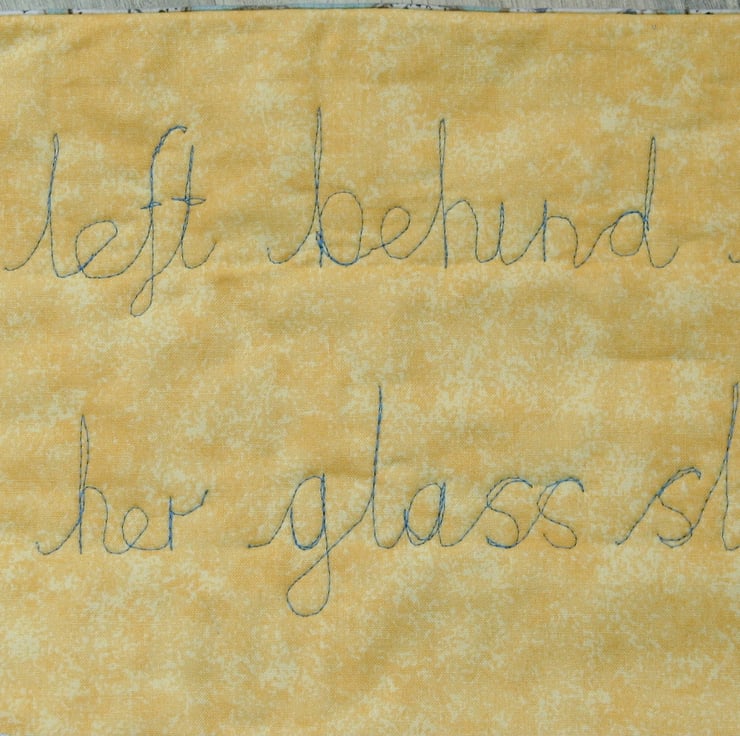 left behind
her glass sl